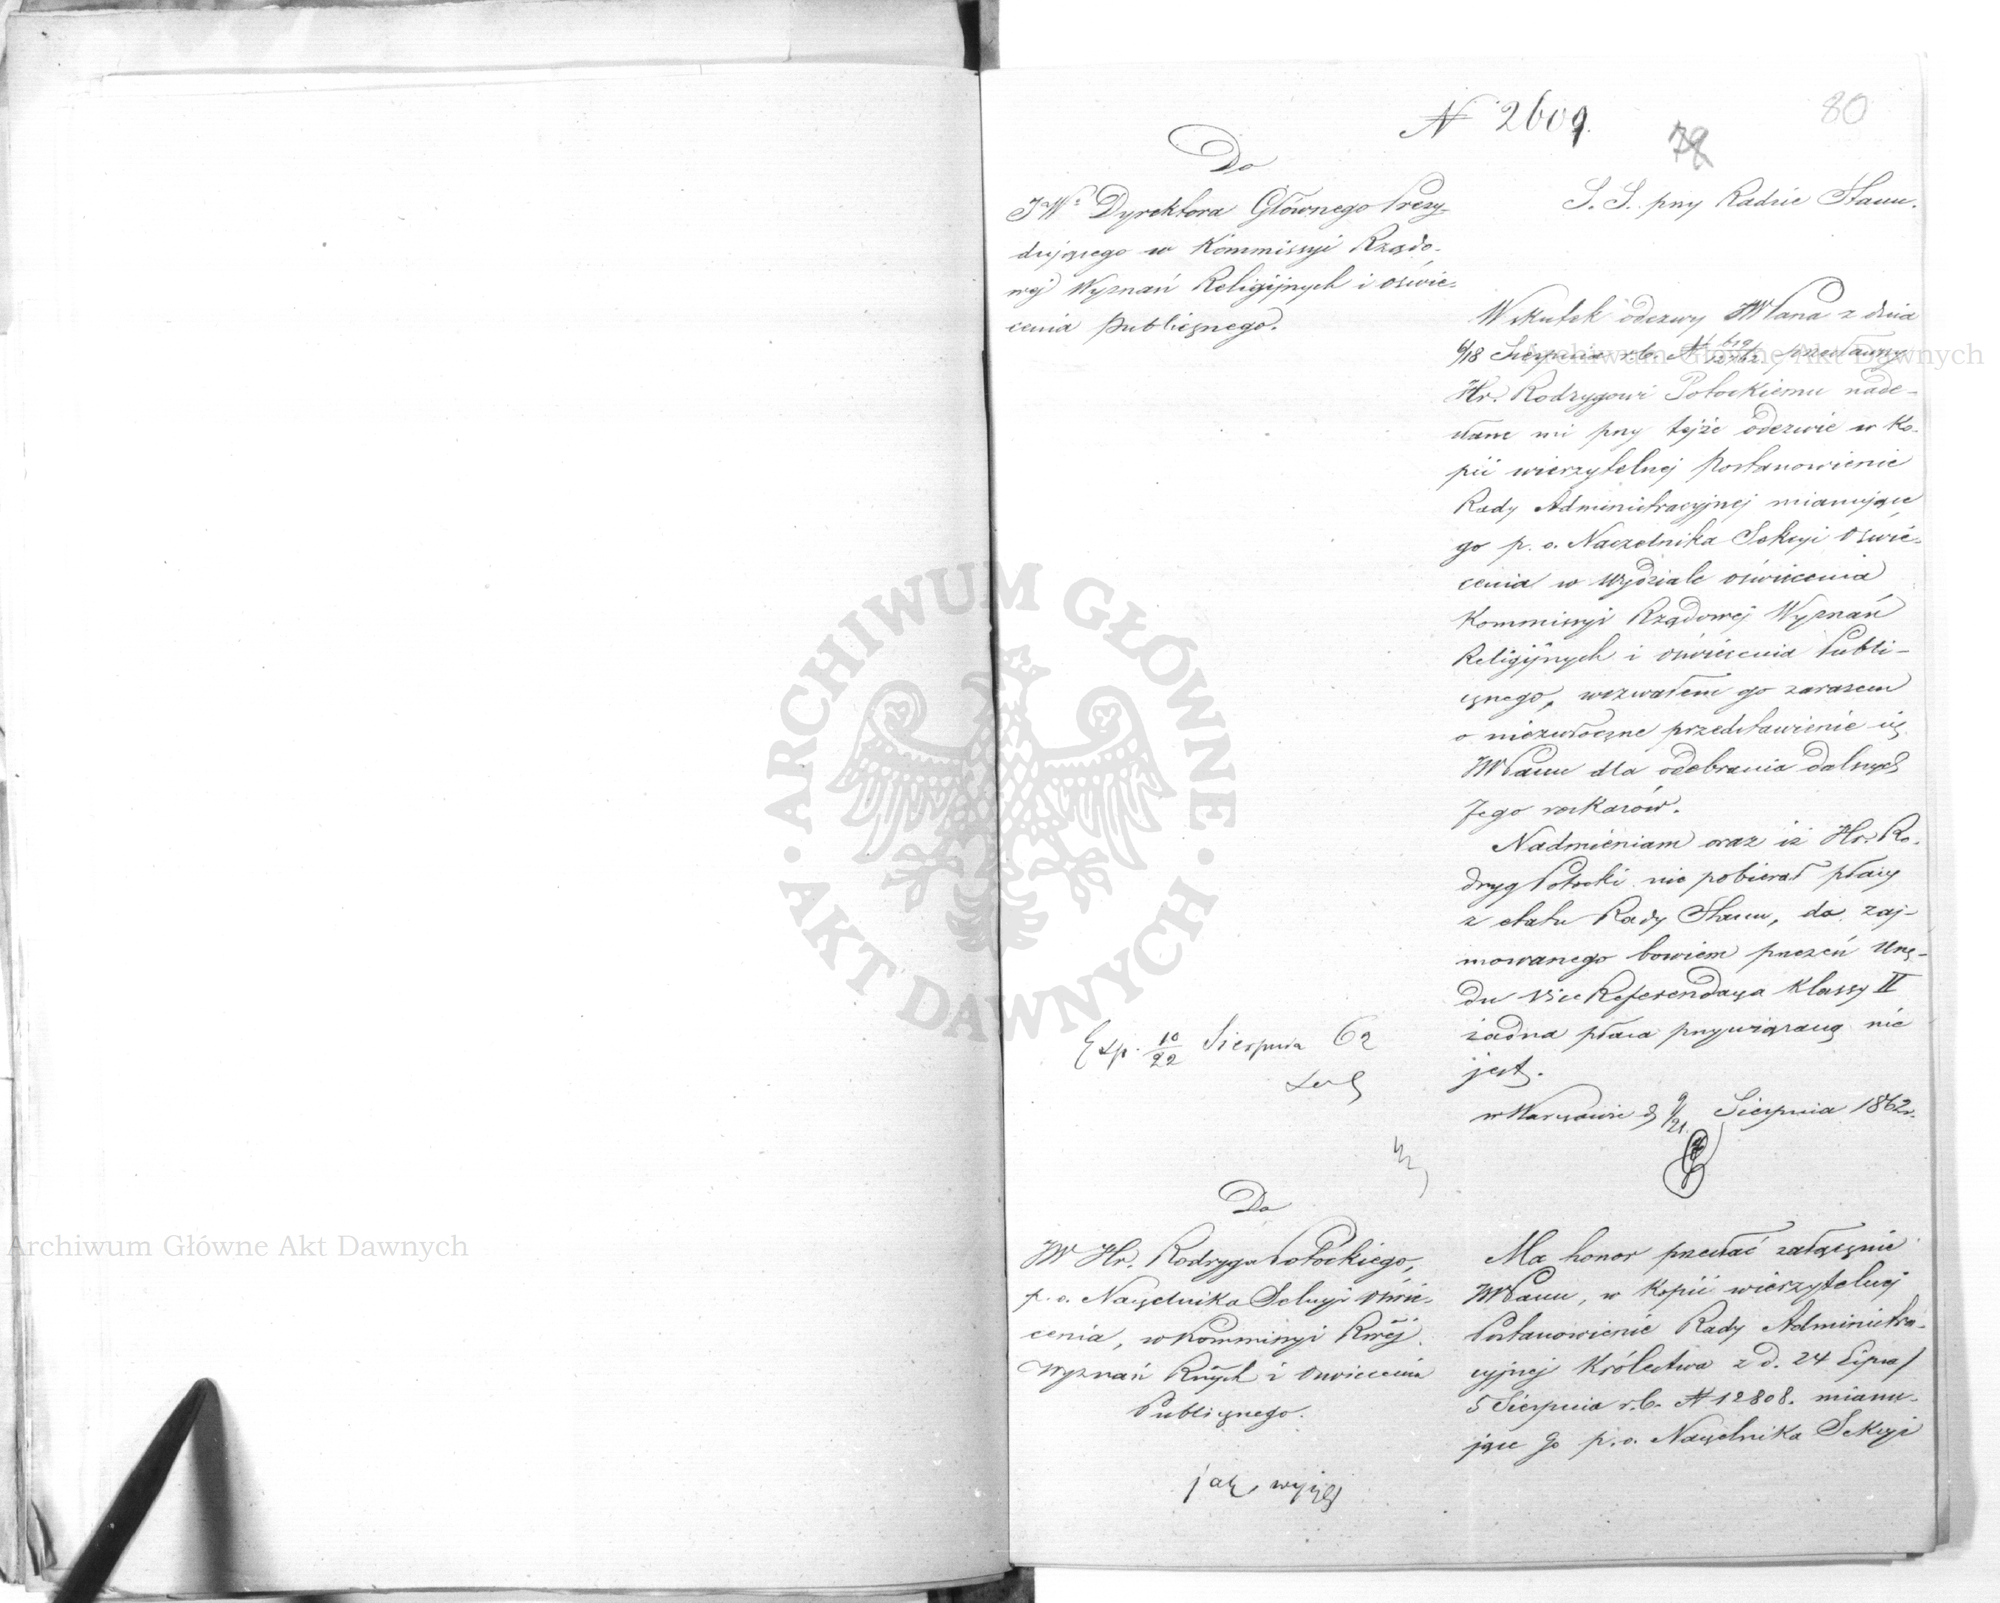 N 2609.
80
79
Do
JW. Dyrektora Głównego Prezy-
dującego w Kommissyi Rządo-
wej Wyznań Religijnych i Oświe-
cenia Publicznego.
S. S. przy Radzie Stanu.
Wskutek odezwy JWPana z dnia
6/18 Sierpnia r.b. N przesławszy
Hr. Rodrygowi Potockiemu nade-
słane mi przy tejże odezwie w ko-
pii wierzytelnej Postanowienie
Rady Administracyjnej mianujące
go p. o. Naczelnika Sekcyi Oświe-
cenia w Wydziale Oświecenia
Kommissyi Rządowej Wyznań
Religijnych i Oświecenia Publi-
cznego, wezwałem go zarazem
o niezwłoczne przedstawienie się
JWPanu dla odebrania dalszych
Jego rozkazów.
Nadmieniam oraz iż Hr. Ro-
dryg Potocki nie pobierał płacy
z etatu Rady Stanu, do zaj-
mowanego bowiem przezeń Urzę-
du ViceReferendarza Klassy II
żadna płaca przywiązaną nie
jest.
w Warszawie d 9/21 Sierpnia 1862 r.
Exp. 10/22 Sierpnia 62
Do
JW Hr. Rodryga Potockiego,
p. o. Naczelnika Sekcyi Oświe-
cenia, w Kommissyi Rwéj
Wyznań Rnych i Oświecenia
Publicznego.
jak wyżej
Ma honor przesłać załącznie
JWPanu, w kopii wierzytelnej
Postanowienie Rady Administra-
cyjnej Królestwa z d. 24 Lipca/
5 Sierpnia r.b. N 12808. mianu-
jące Go p. o. Naczelnika Sekcyi
ARCHIWUM GŁÓWNE AKT DAWNYCH
Archiwum Główne Akt Dawnych
Archiwum Główne Akt Dawnych